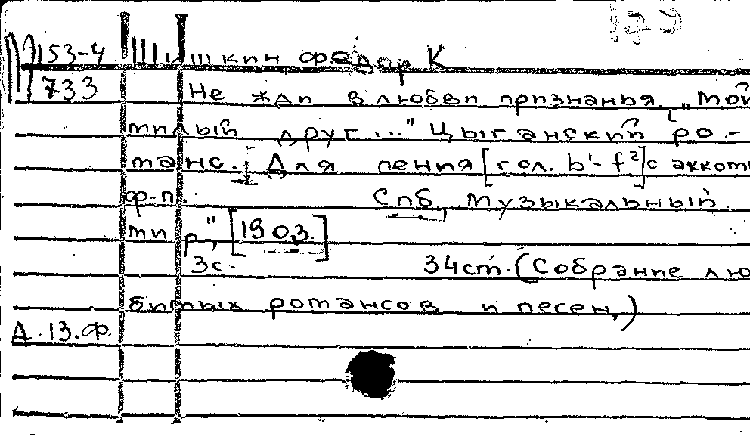 179
П153-4 Шишкин Федор К
733
Не жди в любви признанья. „Мой
милый друг..." Цыганский ро-
манс. [Для пения [гол. b¹-f²] с акком
ф-п. Спб, „Музыкальный
мир", [1903.]
3с. 34cm. (Собрание лю
бимых романсов и песен.)
Д.13.ф.